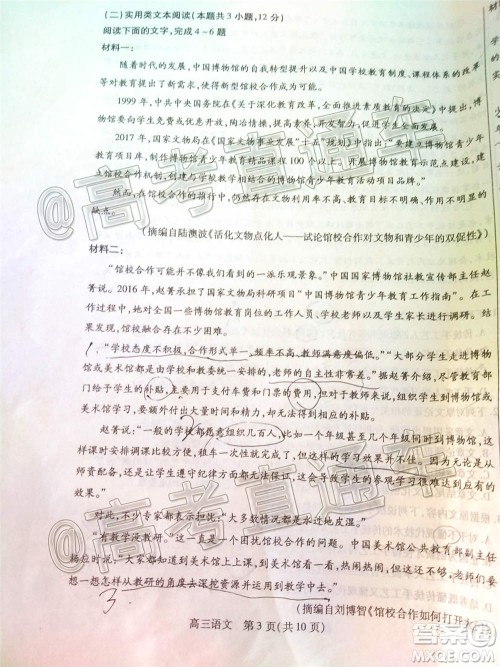 (二)实用类文本阅读(本题共3小题,12分)
阅读下面的文字,完成4~6题
材料一:
随着时代的发展,中国博物馆的自我转型提升以及中国学校教育制度、课程体系的改革
等对教育提出了新需求,使得新型馆校合作成为可能。
1999年,中共中央国务院在《关于深化教育改革,全面推进素质教育的决定》中提出,博
物馆要向学生免费或优惠开放,陶冶情操,提高素养,开发智力,促进学生全面发展。
2017年,国家文物局在《国家文物事业发展"十三五"规划》中指出:"要建立博物馆青少年
教育项目库,制作博物馆青少年教育精品课程100个以上。开展博物馆教育示范点建设,建
立馆校合作机制,创建与学校教学相结合的博物馆青少年教育体系。"
然而,在馆校合作的推行中,仍然存在方法单一、频率不高、教育目标不明确、作用不明显的
缺点。
(摘编自陆澳波《活化文物点化人——试论馆校合作对文物和青少年的双促性》)
材料二:
"馆校合作可能并不像我们看到的一派乐观景象。"中国国家博物馆社教宣传部主任赵
菁说。2016年,赵菁承担了国家文物局科研项目"中国博物馆青少年教育工作指南"。在工作
过程中,她对全国一些博物馆教育岗位的工作人员、学校老师以及学生家长进行调研。结
果发现,馆校合作存在不少困难。
"学校态度不积极,合作形式单一,频率不高,教师满意度偏低。""大部分学生走进博物
馆或美术馆都是由学校有组织地安排的,老师的自主性非常差。"赵菁介绍,尽管教育部
门给予学生的补贴,主要用于支付车费和门票的费用,但对于教师来说,组织学生到博物馆
或美术馆学习,需要额外付出大量时间和精力,却没有得到相应的补贴。
赵菁说:"一般的学校都愿意组织几百人,比如一个年级甚至几个年级同时到博物馆,这
样课时安排调课比较容易,但如果是人数较少的班级出行就比较困难。然而,无论是从
师资配备,还是学生遵守纪律方面都无法保证,这就会导致学生的参观学习很难达到应有
的效果。"
对此,不少专家都担忧:"大多数情况是水过地皮湿。"
"有教学没教研。"这是一直困扰馆校合作的问题。中国美术馆公共教育部副主任杨
应时说:"大家都知道到美术馆上上课、看一看,热闹热闹,但还达不到教研。老师们要想
一想怎样从教研的角度去深挖资源并运用到教学中去。"
3.
(摘编自刘博智《馆校合作如何打开
高三语文 第3页(共10页)
高考直通车
高考直通车
答案圈